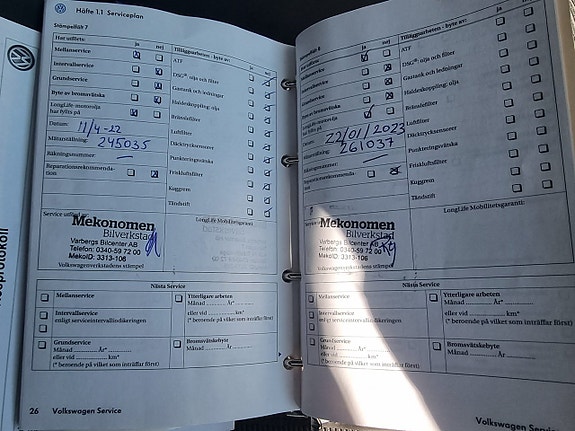 Häfte 1.1 Serviceplan
Stämpelfält 7
Har utförts: ja nej
Mellanservice
Intervallservice
Grundservice
Byte av bromsvätska
LongLife motorolja
har fyllts på
Datum: 11/4-22
Mätarställning: 245035
Räkningsnummer:
Reparationsrekommenda-
tion
Tilläggsarbeten - byte av: ja nej
ATF
DSG®: olja och filter
Gastank och ledningar
Haldexkoppling: olja
Bränslefilter
Luftfilter
Däcktryckssensorer
Punkteringsvätska
Friskluftsfilter
Kuggrem
Tändstift
Service utförd av:
Mekonomen
Bilverkstad
Varbergs Bilcenter AB
Telefon: 0340-59 72 00
MekoID: 3313-106
Volkswagenverkstadens stämpel
LongLife Mobilitetsgaranti:
Nästa Service
Mellanservice
Intervallservice
enligt serviceintervallindikeringen
Grundservice
Månad ............ År* ............
eller vid ............ km*
(* beroende på vilket som inträffar först)
Ytterligare arbeten
Månad ............ År* ............
eller vid ............ km*
(* beroende på vilket som inträffar först)
Bromsvätskebyte
Månad ............ År ............
26 Volkswagen Service
Stämpelfält 8
Har utförts: ja nej
Mellanservice
Intervallservice
Grundservice
Byte av bromsvätska
LongLife motorolja
har fyllts på
Datum: 22/01/2023
Mätarställning: 261037
Räkningsnummer:
Reparationsrekommenda-
tion
Tilläggsarbeten - byte av: ja nej
ATF
DSG®: olja och filter
Gastank och ledningar
Haldexkoppling: olja
Bränslefilter
Luftfilter
Däcktryckssensorer
Punkteringsvätska
Friskluftsfilter
Kuggrem
Tändstift
Service utförd av:
Mekonomen
Bilverkstad
Varbergs Bilcenter AB
Telefon: 0340-59 72 00
MekoID: 3313-106
Volkswagenverkstadens stämpel
LongLife Mobilitetsgaranti:
Nästa Service
Mellanservice
Intervallservice
enligt serviceintervallindikeringen
Grundservice
Månad ............ År* ............
eller vid ............ km*
(* beroende på vilket som inträffar först)
Ytterligare arbeten
Månad ............ År* ............
eller vid ............ km*
(* beroende på vilket som inträffar först)
Bromsvätskebyte
Månad ............ År ............
Volkswagen